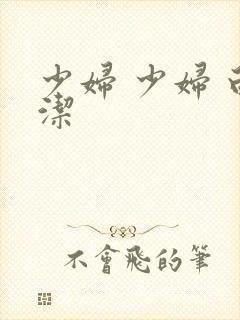 少婦 少婦
潔
不會飛的筆